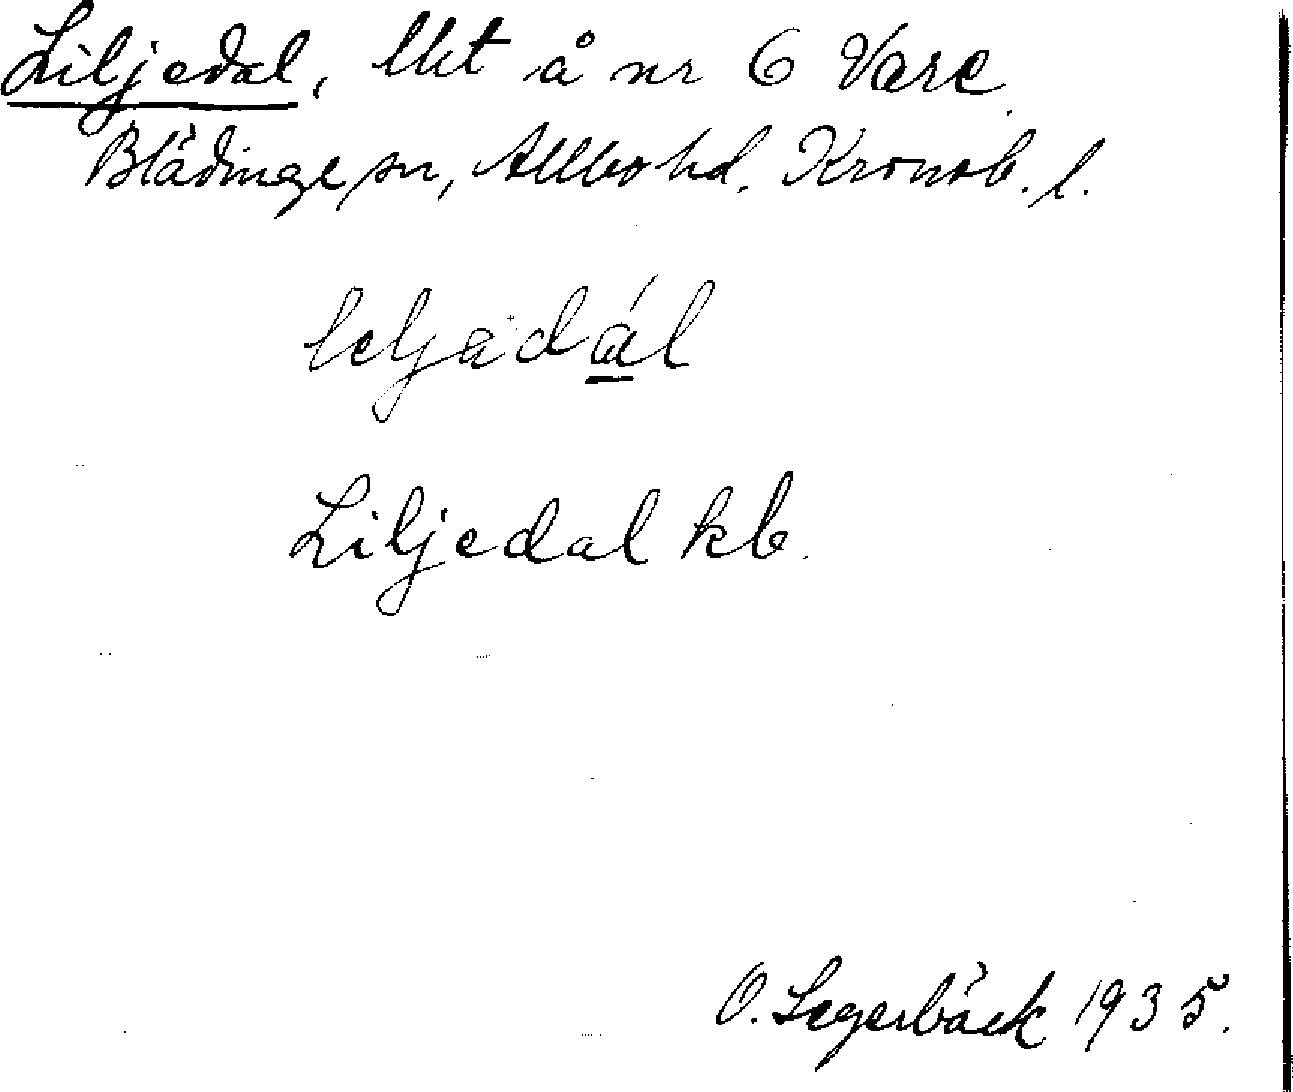 Liljedal, lht å nr 6 Vare
Blädinge sn, Allbo hd. Kronob. l.
leljadál
Liljedal kb.
O. Segerbäck 1935.